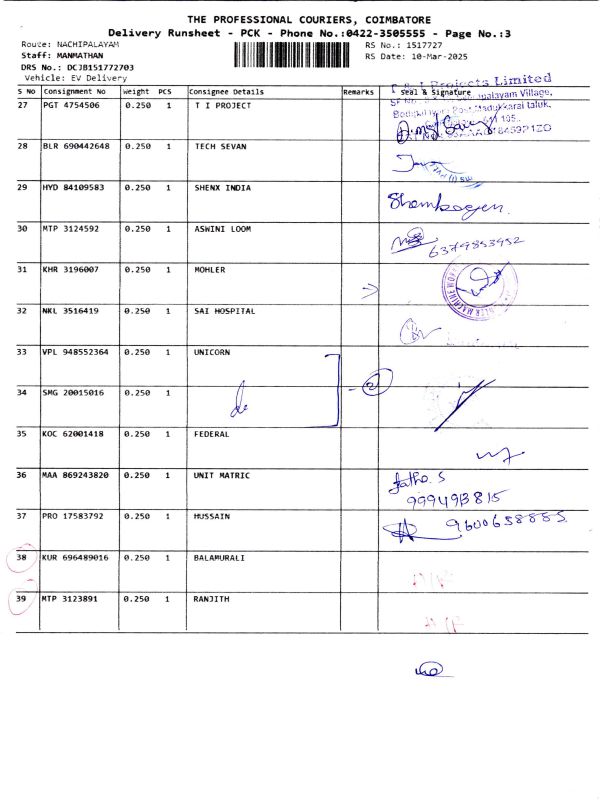 THE PROFESSIONAL COURIERS, COIMBATORE
Delivery Runsheet - PCK - Phone No.:0422-3505555 - Page No.:3
Route: NACHIPALAYAM RS No.: 1517727
Staff: MANMATHAN RS Date: 10-Mar-2025
DRS No.: DCJB151772703
Vehicle: EV Delivery
S No Consignment No Weight PCS Consignee Details Remarks Seal & Signature
Projects Limited
27 PGT 4754506 0.250 1 T I PROJECT
28 BLR 690442648 0.250 1 TECH SEVAN
29 HYD 84109583 0.250 1 SHENX INDIA
30 MTP 3124592 0.250 1 ASWINI LOOM
6374853452
31 KHR 3196007 0.250 1 MOHLER
32 NKL 3516419 0.250 1 SAI HOSPITAL
33 VPL 948552364 0.250 1 UNICORN
34 SMG 20015016 0.250 1
2
35 KOC 62001418 0.250 1 FEDERAL
36 MAA 869243820 0.250 1 UNIT MATRIC
37 PRO 17583792 0.250 1 HUSSAIN
9600658885
38 KUR 696489016 0.250 1 BALAMURALI
39 MTP 3123891 0.250 1 RANJITH